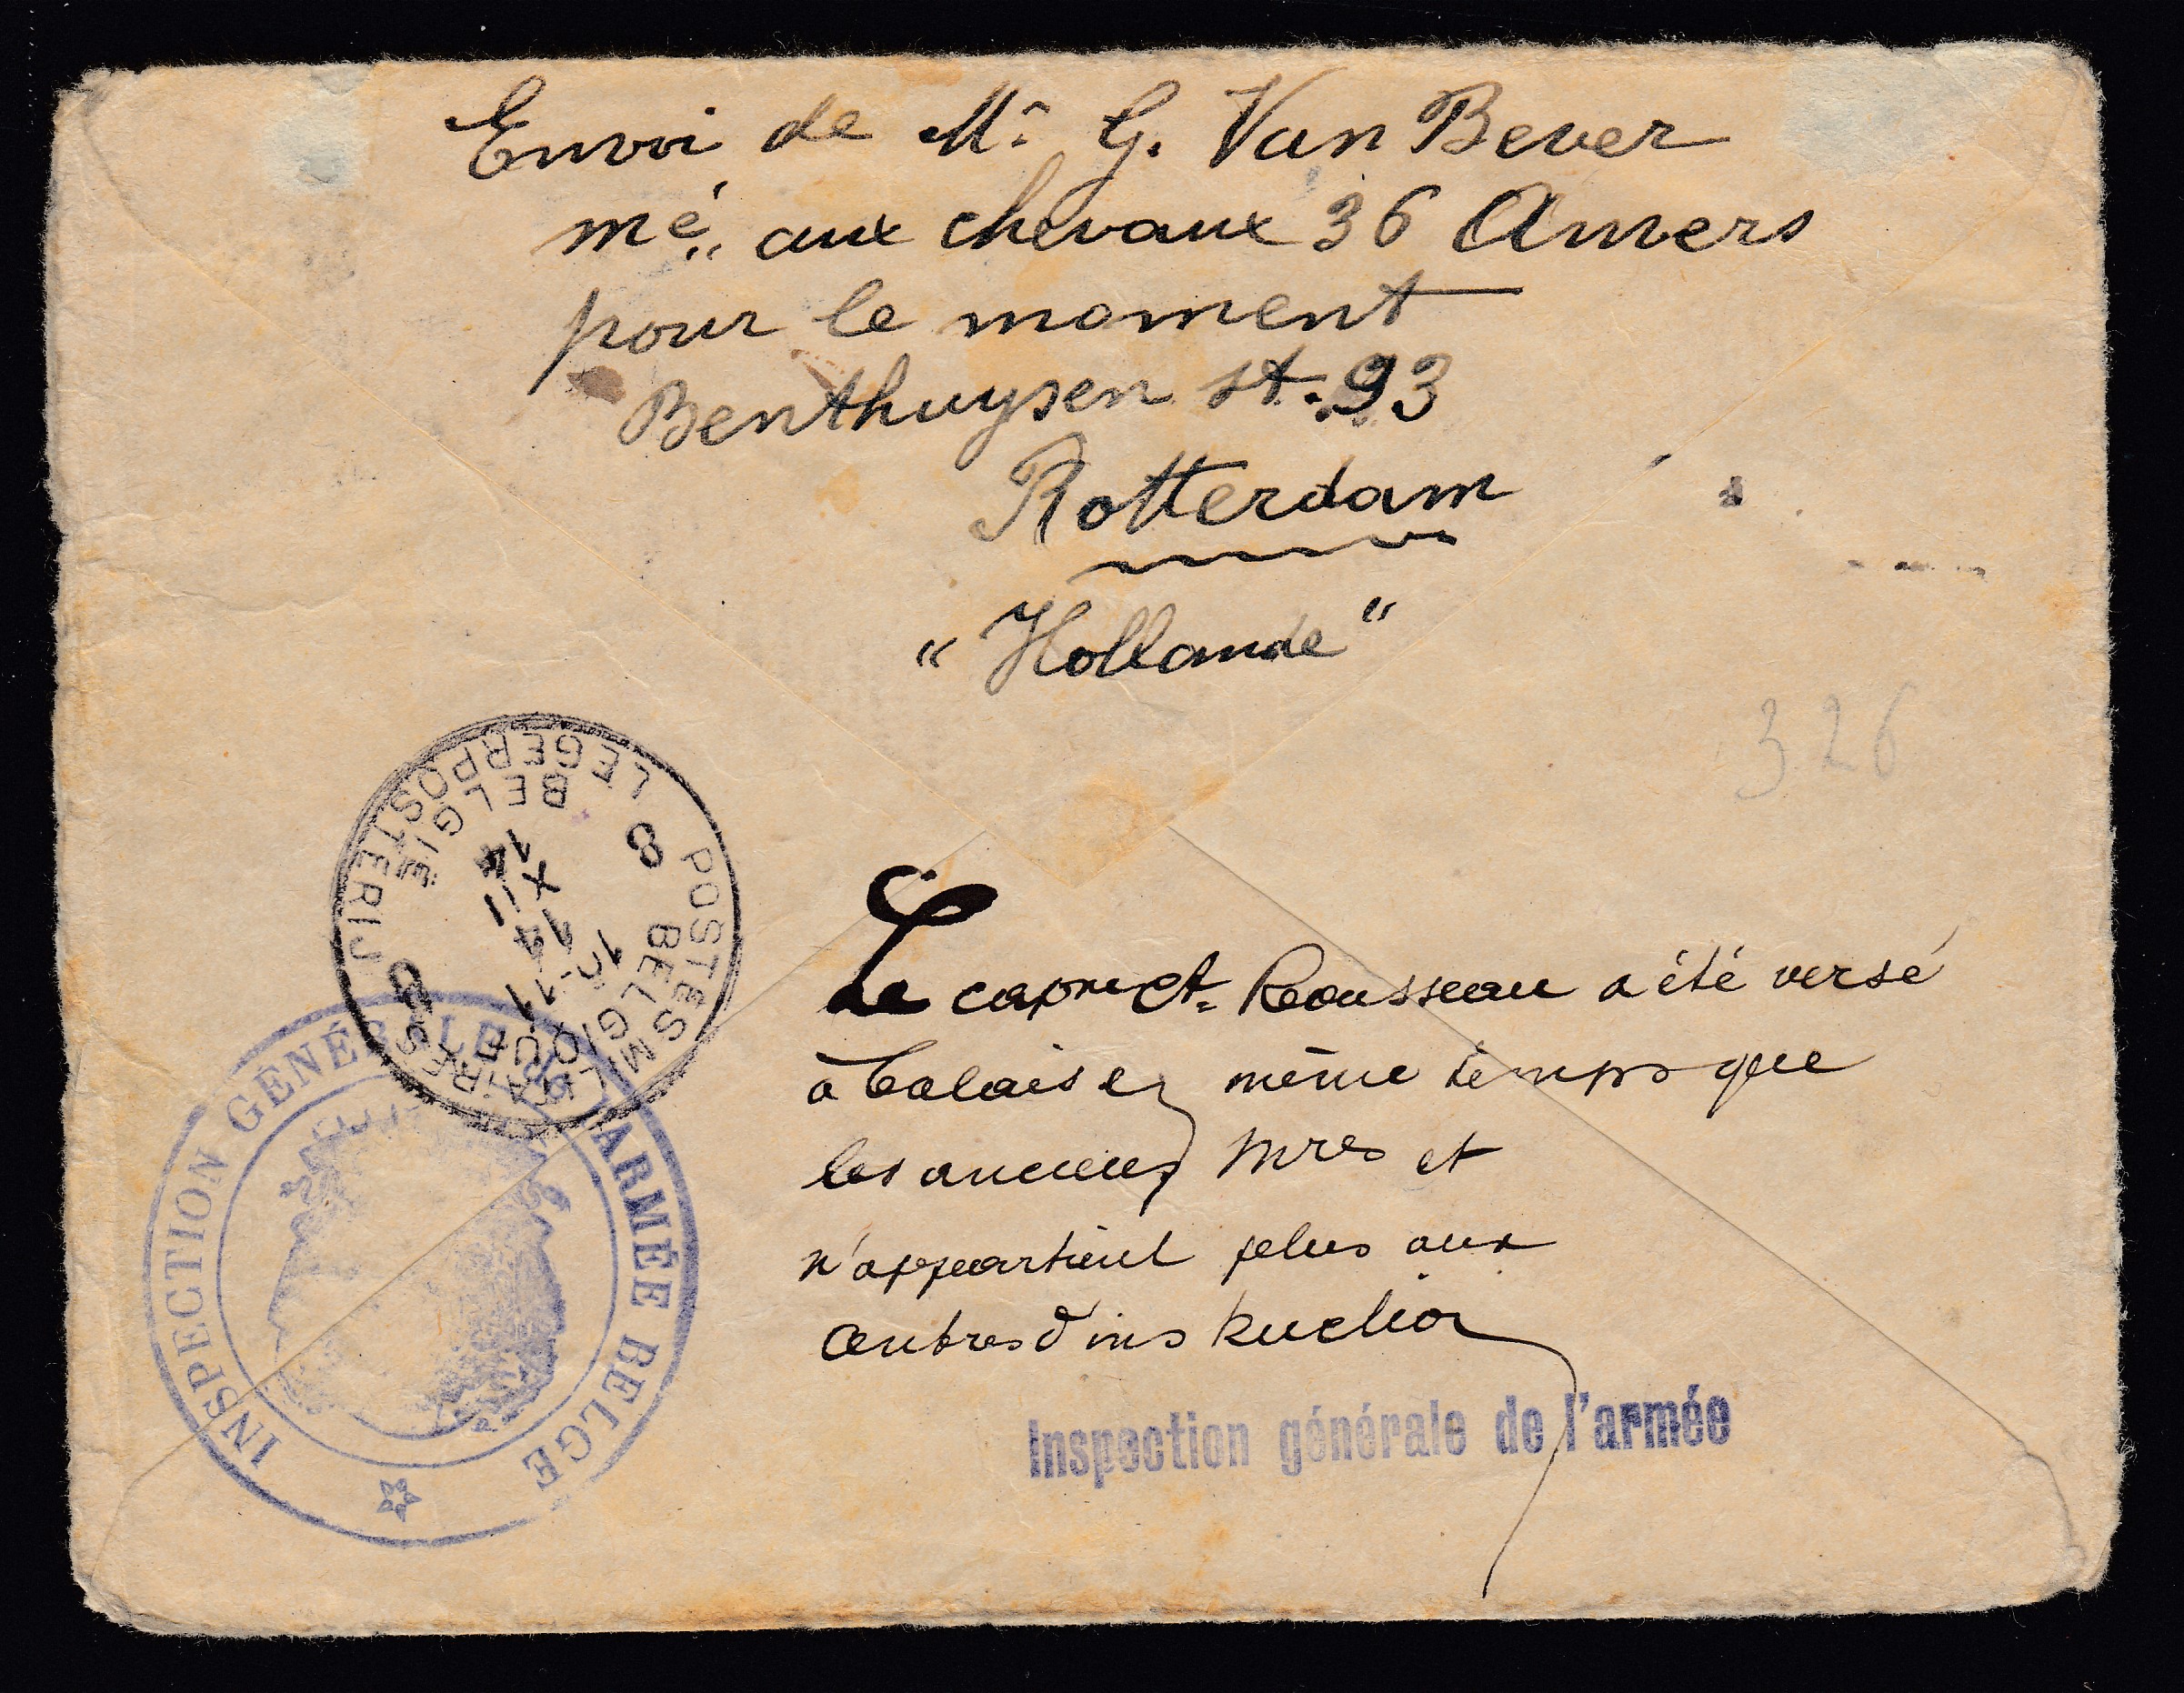 Envoi de Mr G. Van Bever
mé aux chevaux 36 Anvers
pour le moment
Benthuysen st. 93
Rotterdam
"Hollande"
326
POSTES MILITAIRES
BELGIQUE
LEGERPOSTERIJ
BELGIE
8 8
10-11
14
XII
14
INSPECTION GÉNÉRALE DE L'ARMÉE BELGE
Le Rousseau a été versé
à Calais en même temps que
les anciens et
n'appartient plus aux
centres d'instruction
Inspection générale de l'armée